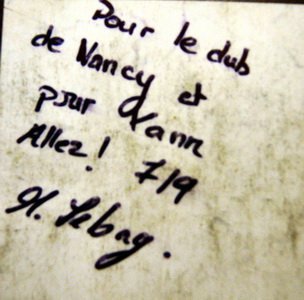 Pour le club
de Nancy et
pour Yann
Allez! 7/9
H. Sebag.